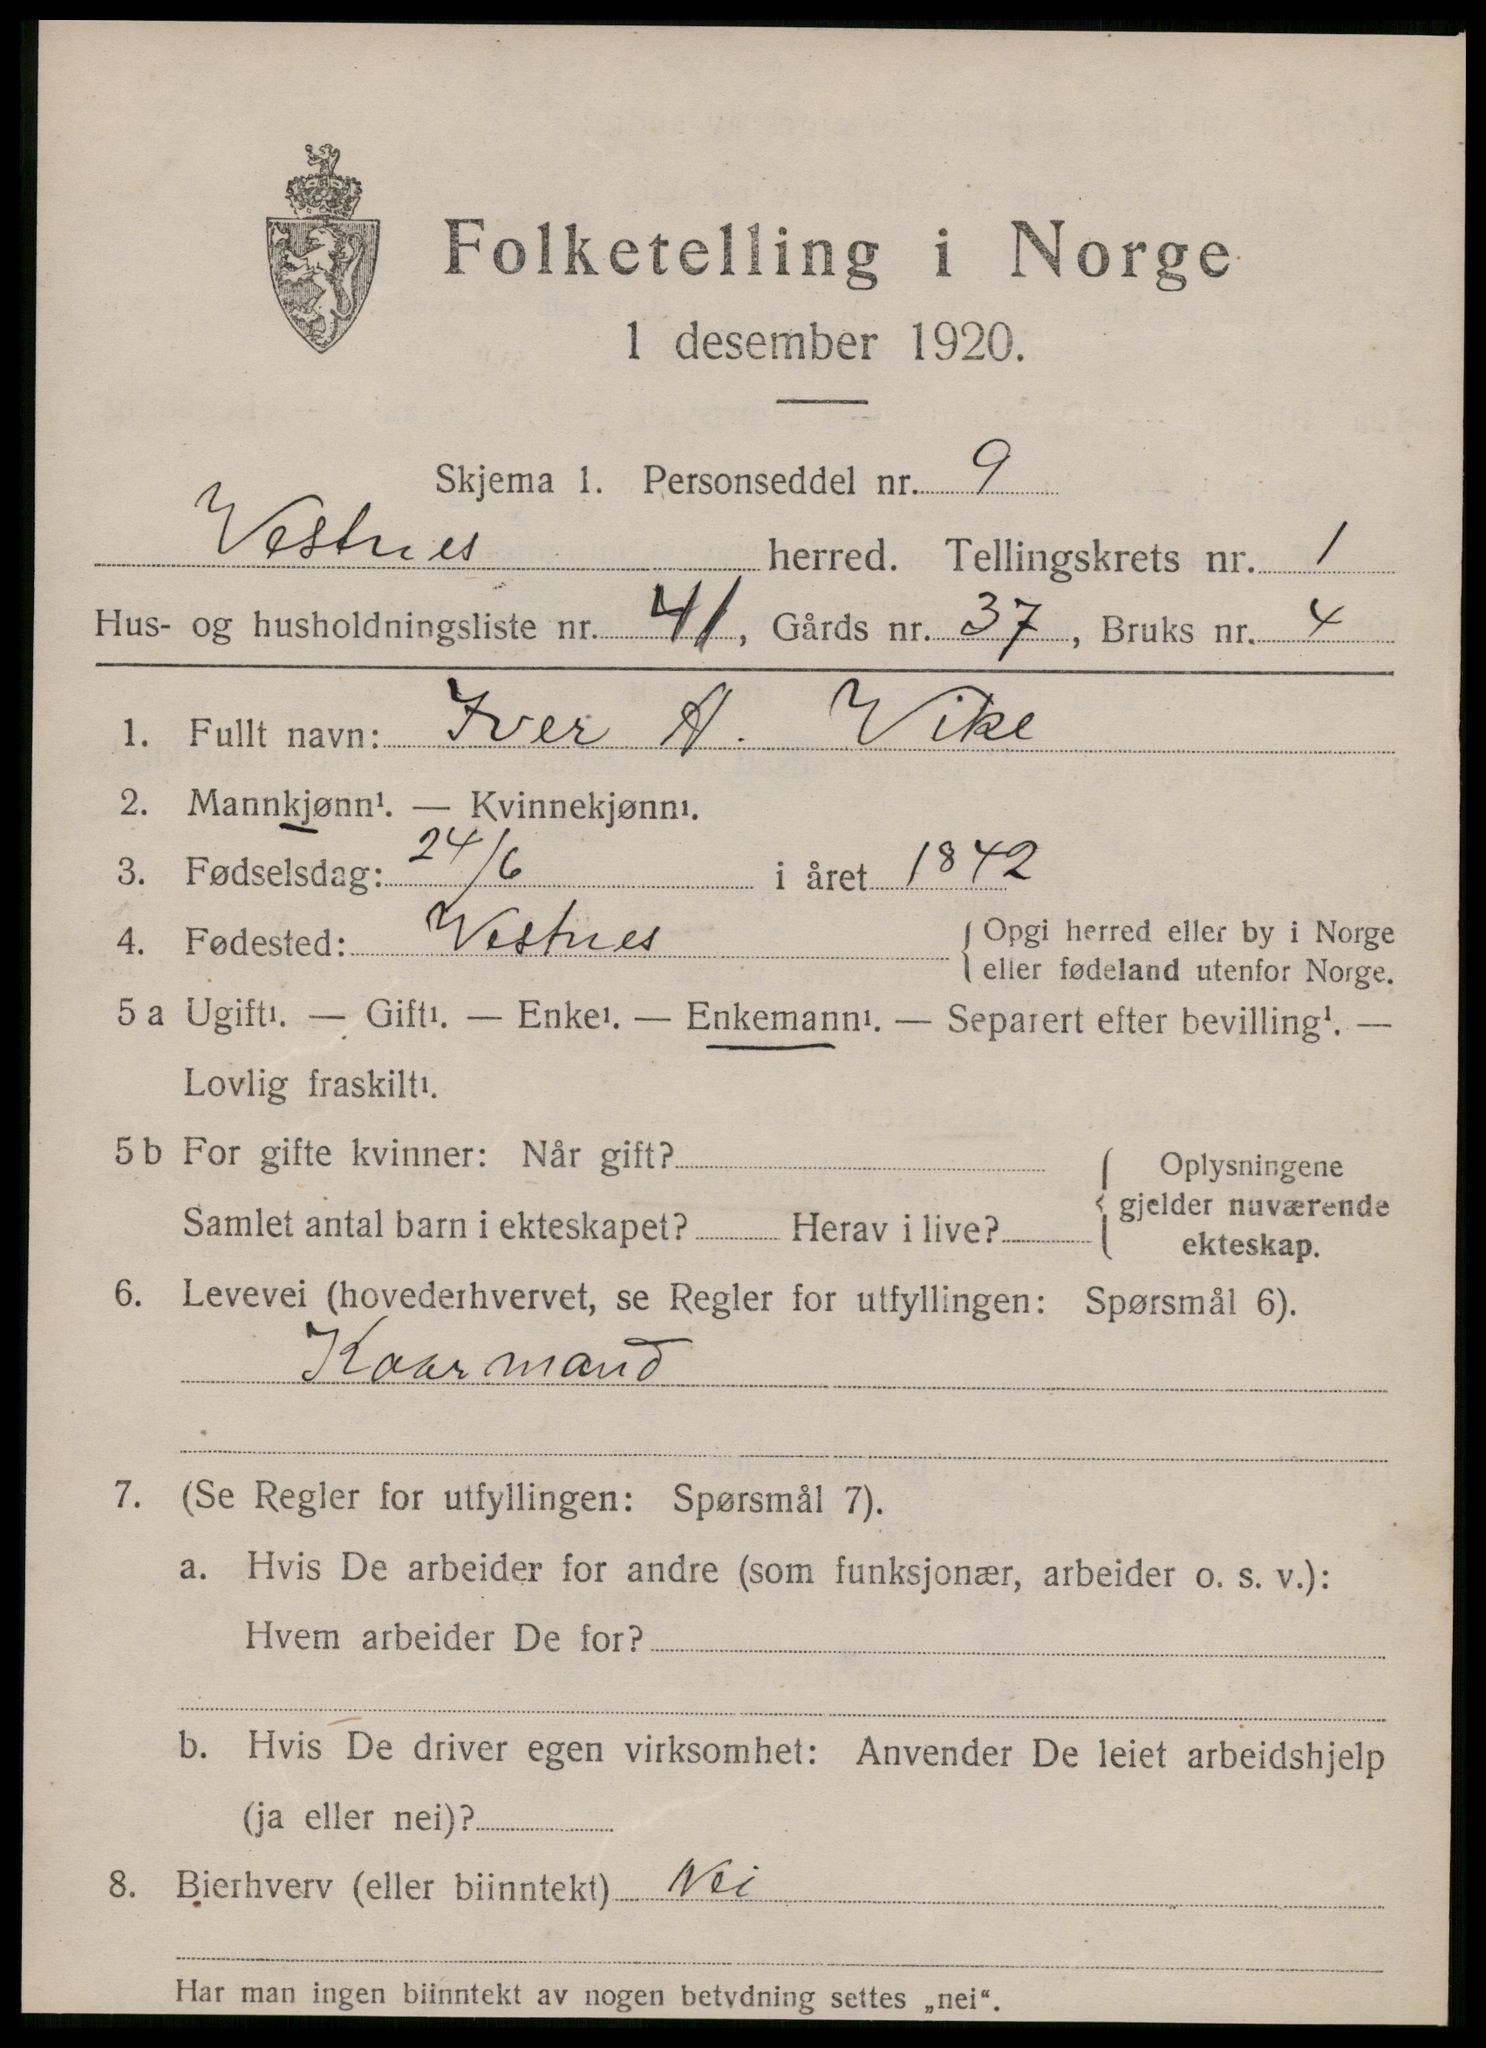 Folketelling i Norge
1 desember 1920.
Skjema 1. Personseddel nr. 9
Vestnes herred. Tellingskrets nr. 1
Hus- og husholdningsliste nr. 41, Gårds nr. 37, Bruks nr. 4
1. Fullt navn: Iver A. Vike
2. Mannkjønn¹. — Kvinnekjønn¹.
3. Fødselsdag: 24/6 i året 1842
4. Fødested: Vestnes { Opgi herred eller by i Norge
eller fødeland utenfor Norge.
5 a Ugift¹. — Gift¹. — Enke¹. — Enkemann¹. — Separert efter bevilling¹. —
Lovlig fraskilt¹.
5 b For gifte kvinner: Når gift?
Samlet antal barn i ekteskapet? Herav i live?
{ Oplysningene
gjelder nuværende
ekteskap.
6. Levevei (hovederhvervet, se Regler for utfyllingen: Spørsmål 6).
Kaarmand
7. (Se Regler for utfyllingen: Spørsmål 7).
a. Hvis De arbeider for andre (som funksjonær, arbeider o. s. v.):
Hvem arbeider De for?
b. Hvis De driver egen virksomhet: Anvender De leiet arbeidshjelp
(ja eller nei)?
8. Bierhverv (eller biinntekt) Nei
Har man ingen biinntekt av nogen betydning settes „nei“.